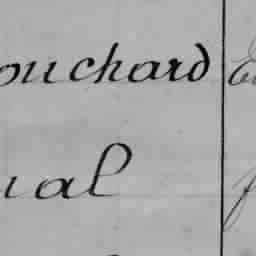 ouchard
ual